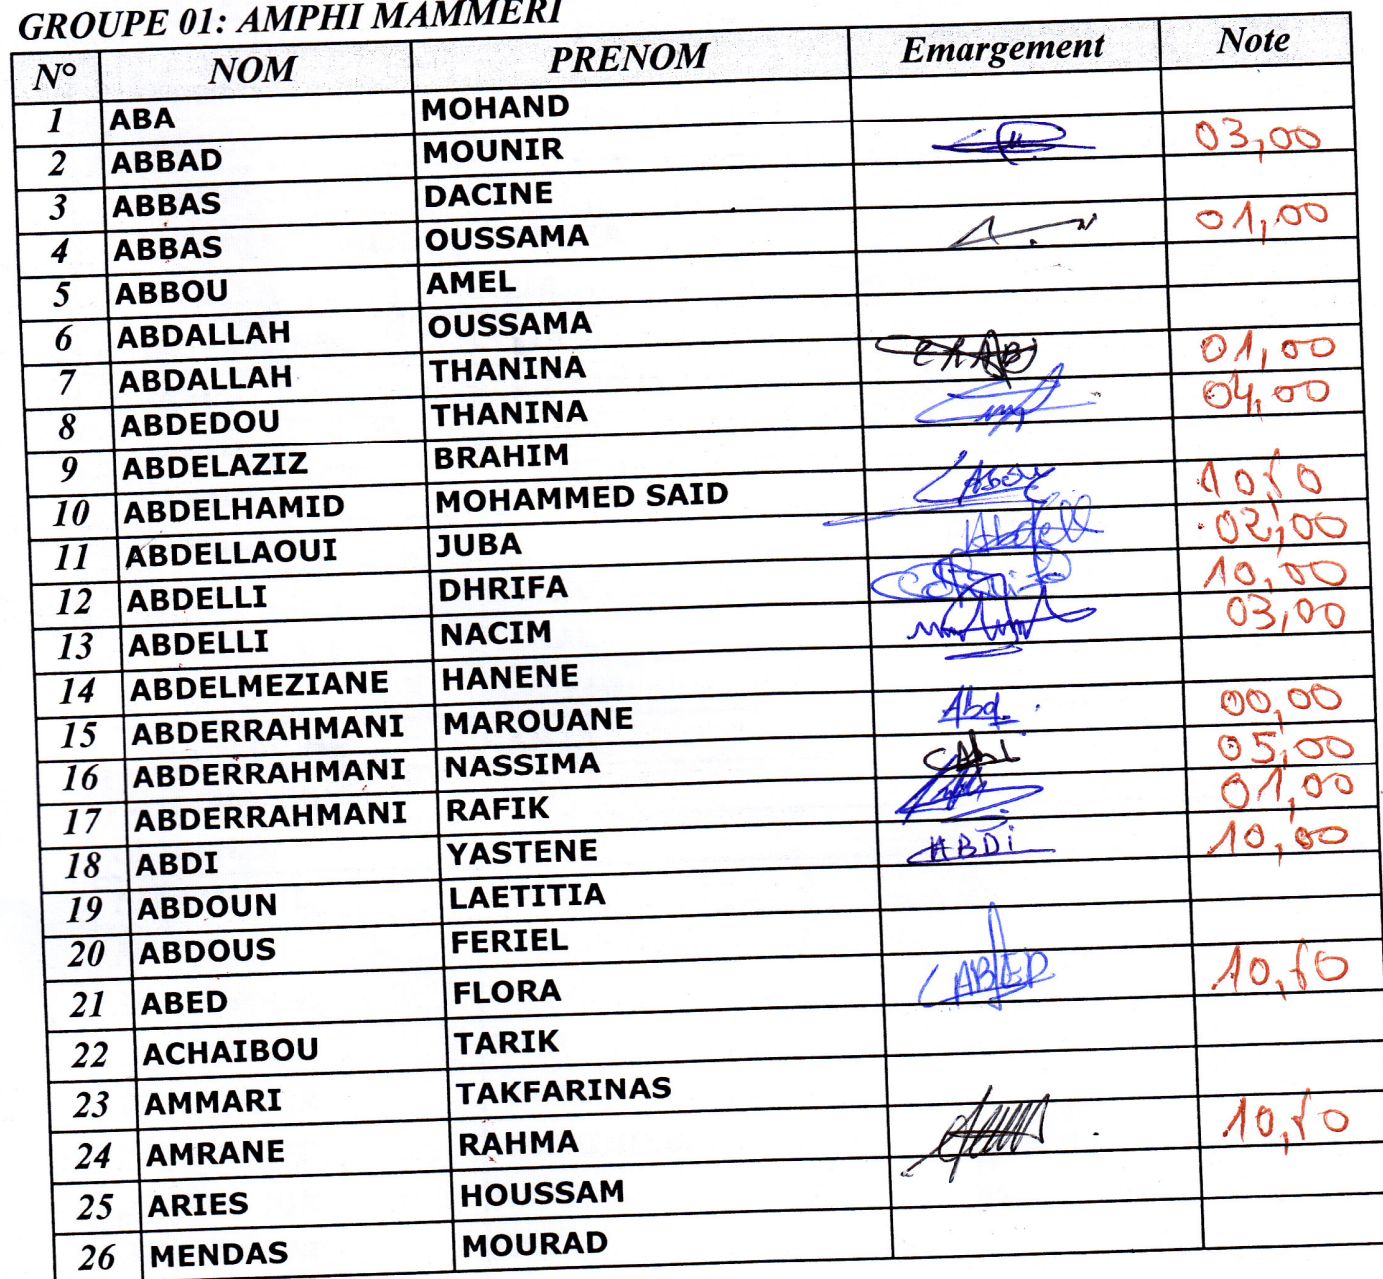 GROUPE 01: AMPHI MAMMERI
N° NOM PRENOM Emargement Note
1 ABA MOHAND
2 ABBAD MOUNIR 03,00
3 ABBAS DACINE
4 ABBAS OUSSAMA 01,00
5 ABBOU AMEL
6 ABDALLAH OUSSAMA
7 ABDALLAH THANINA 01,00
8 ABDEDOU THANINA 04,00
9 ABDELAZIZ BRAHIM
10 ABDELHAMID MOHAMMED SAID 10,50
11 ABDELLAOUI JUBA Abdell 02,00
12 ABDELLI DHRIFA 10,00
13 ABDELLI NACIM 03,00
14 ABDELMEZIANE HANENE
15 ABDERRAHMANI MAROUANE Abd. 00,00
16 ABDERRAHMANI NASSIMA 05,00
17 ABDERRAHMANI RAFIK 01,00
18 ABDI YASTENE ABDi 10,00
19 ABDOUN LAETITIA
20 ABDOUS FERIEL
21 ABED FLORA 10,50
22 ACHAIBOU TARIK
23 AMMARI TAKFARINAS
24 AMRANE RAHMA 10,50
25 ARIES HOUSSAM
26 MENDAS MOURAD